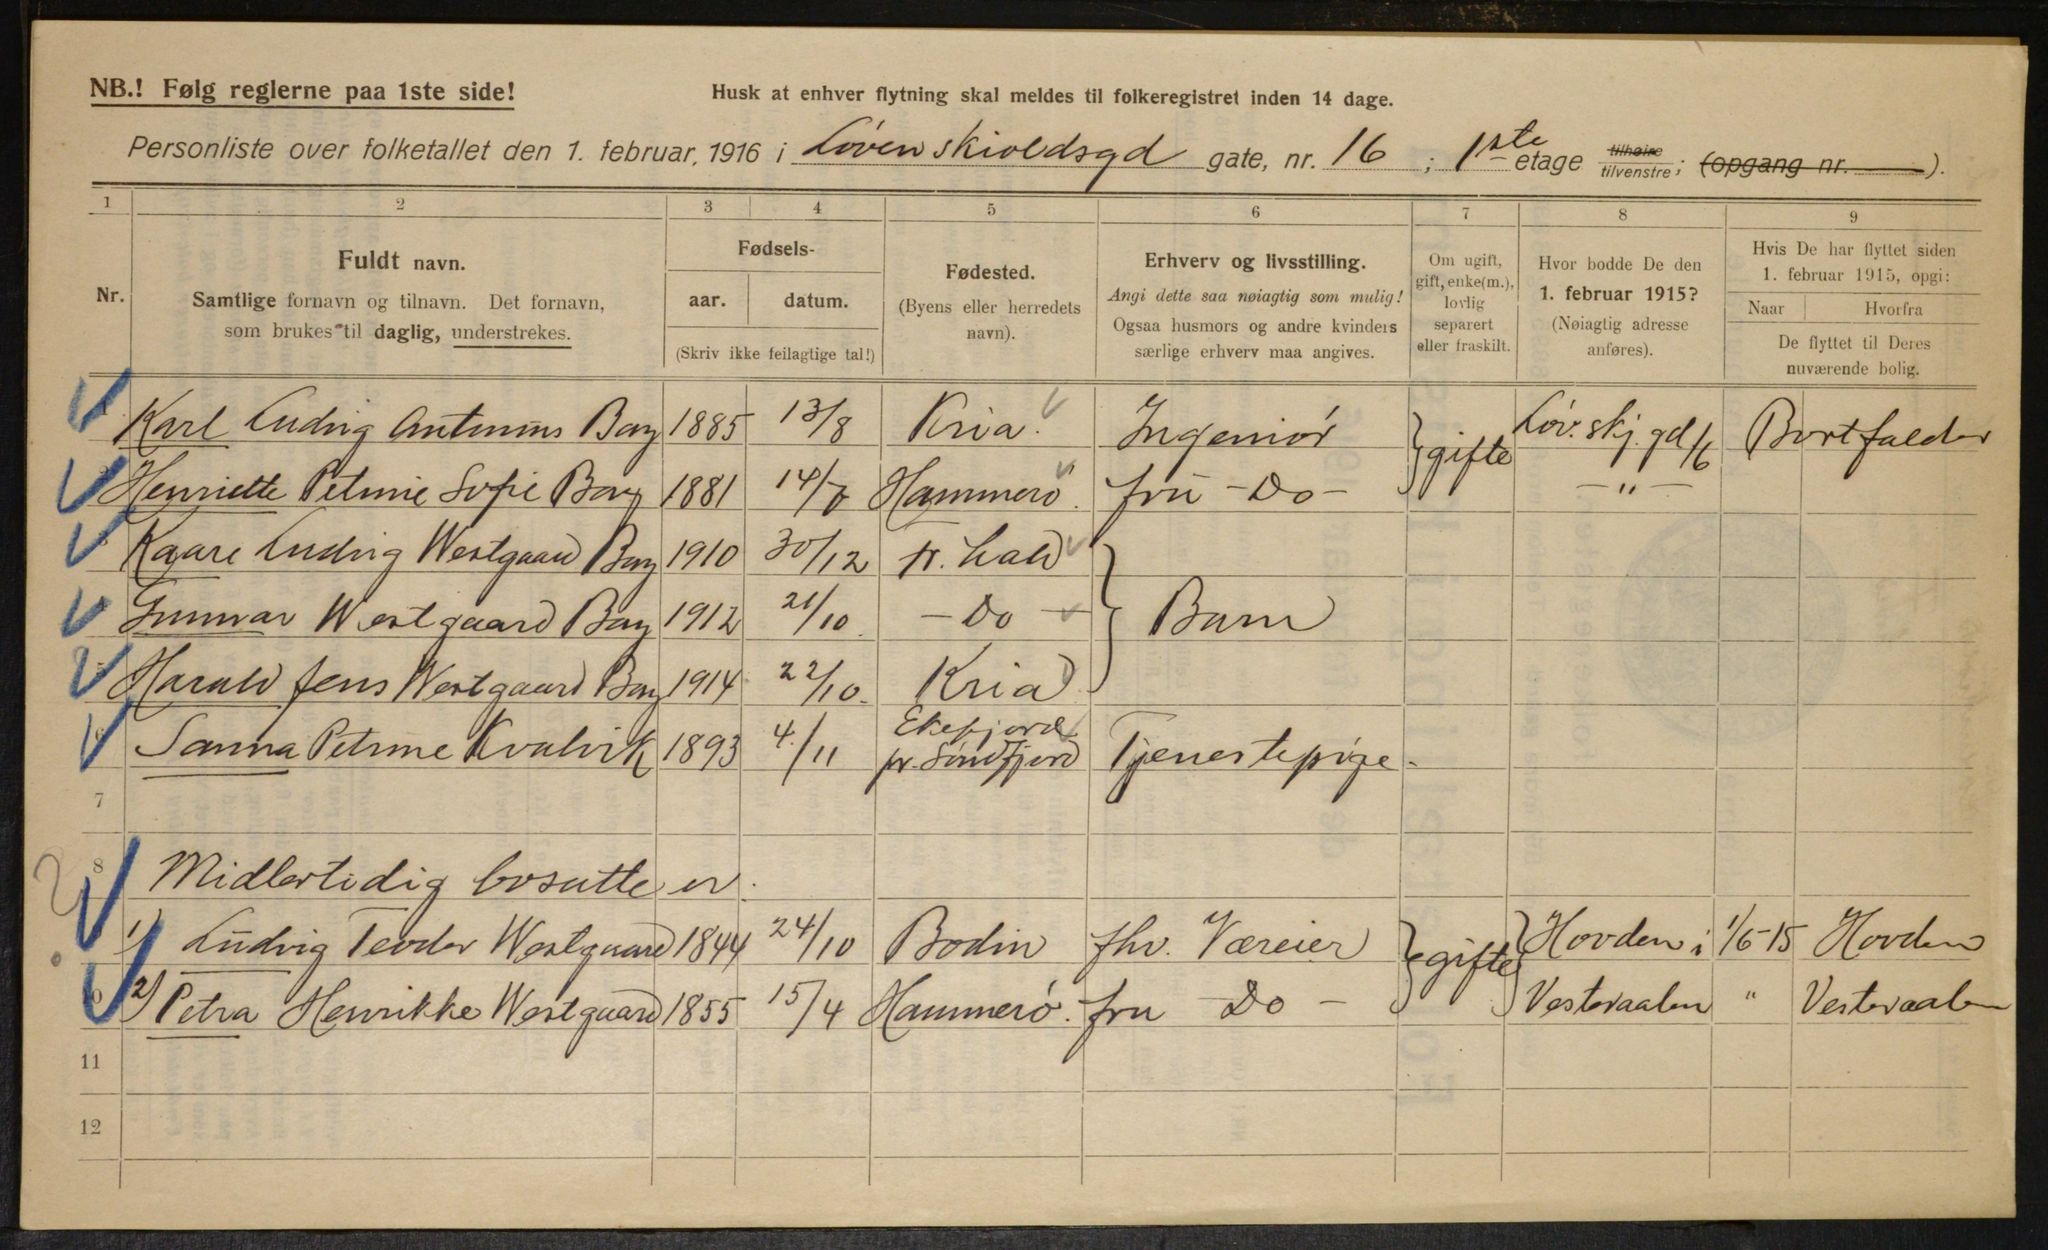 NB.! Følg reglerne paa 1ste side!
Husk at enhver flytning skal meldes til folkeregistret inden 14 dage.
Personliste over folketallet den 1. februar, 1916 i Løvenskioldsgd gate, nr. 16 ; 1ste etage tilhøire tilvenstre; (opgang nr. ).
1 2 3 4 5 6 7 8 9
Nr.
Fuldt navn.
Samtlige fornavn og tilnavn. Det fornavn,
som brukes til daglig, understrekes.
Fødsels-
aar. datum.
(Skriv ikke feilagtige tal!)
Fødested.
(Byens eller herredets
navn).
Erhverv og livsstilling.
Angi dette saa nøiagtig som mulig!
Ogsaa husmors og andre kvinders
særlige erhverv maa angives.
Om ugift,
gift, enke(m.),
lovlig
separert
eller fraskilt.
Hvor bodde De den
1. februar 1915?
(Nøiagtig adresse
anføres).
Hvis De har flyttet siden
1. februar 1915, opgi:
Naar Hvorfra
De flyttet til Deres
nuværende bolig.
Karl Ludvig Antonius Bay 1885 13/8 Kria. Ingeniør gifte Løv.skj.gd 16 Bortfalder
Henriette Petrine Sofie Bay 1881 14/8 Hammerø. fru - Do - - " -
Kaare Ludvig Westgaard Bay 1910 30/12 Barn
Gunnar Westgaard Bay 1912 21/10 - Do -
5 Harald Jens Westgaard Bay 1914 22/10. Kria
6 Sanna Petrine Kvalvik 1893 4/11 pr. Søndfjord Tjenestepige.
7
8 Midlertidig bosatte er.
1) Ludvig Teodor Westgaard 1844 24/10 Bodin fhv. Væreier gifte Hovden i 1/6-15 Hovden
2) Petra Henrikke Westgaard 1855 15/4 Hammerø. fru Do - Vesteraalen " Vesteraalen
11
12